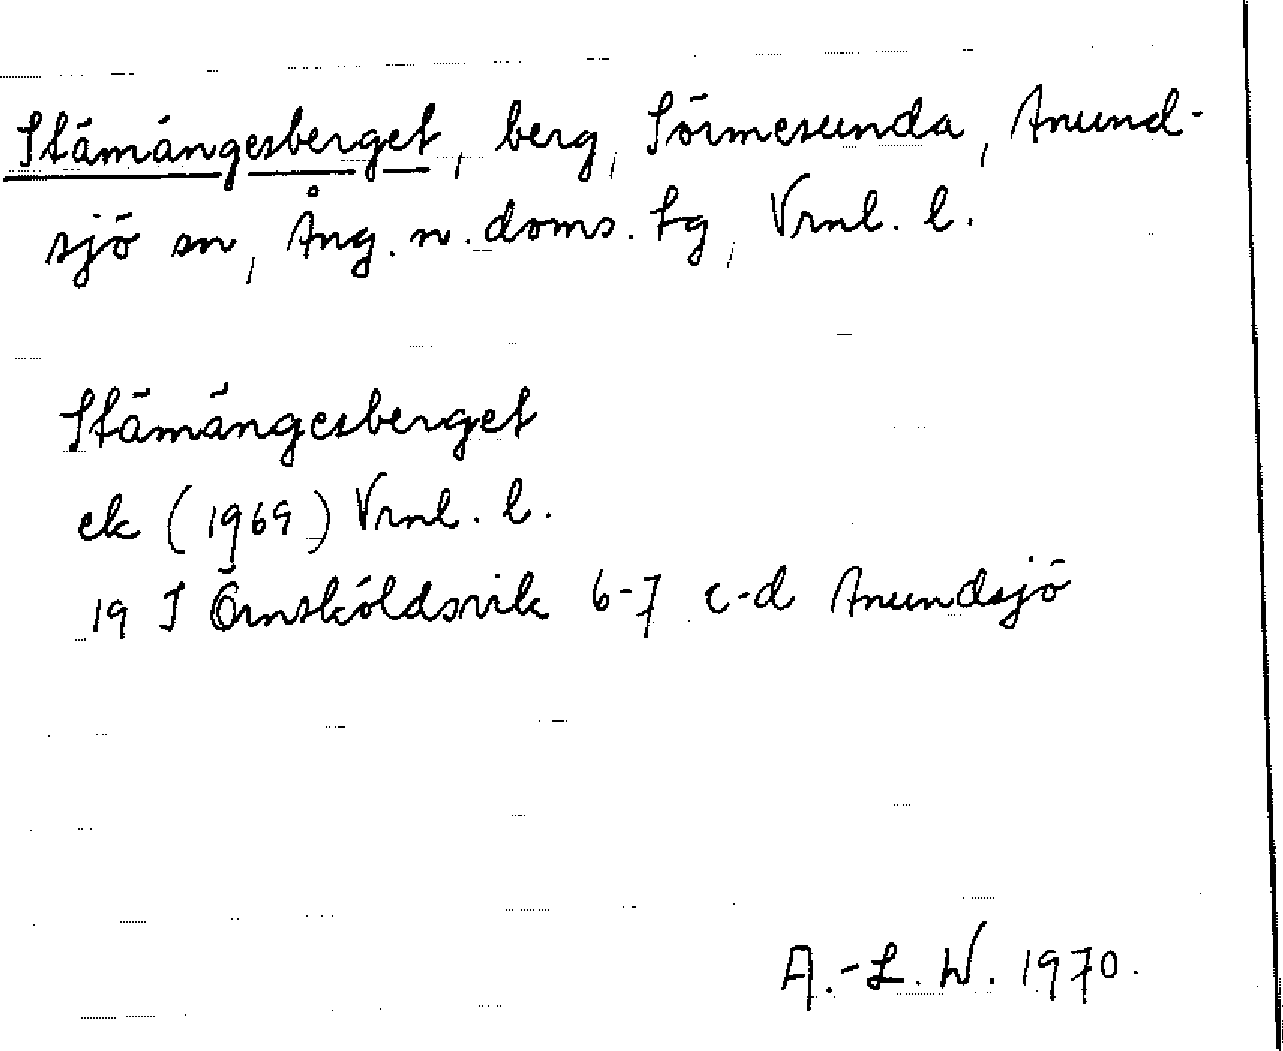 Stämängesberget, berg, Sörmesunda, Anund-
sjö sn, Ång. n. doms. tg, Vrnl. l.
Stämängesberget
ek (1969) Vrnl. l.
19 J Örnsköldsvik 6-7 c-d Anundsjö
A.-L. W. 1970.